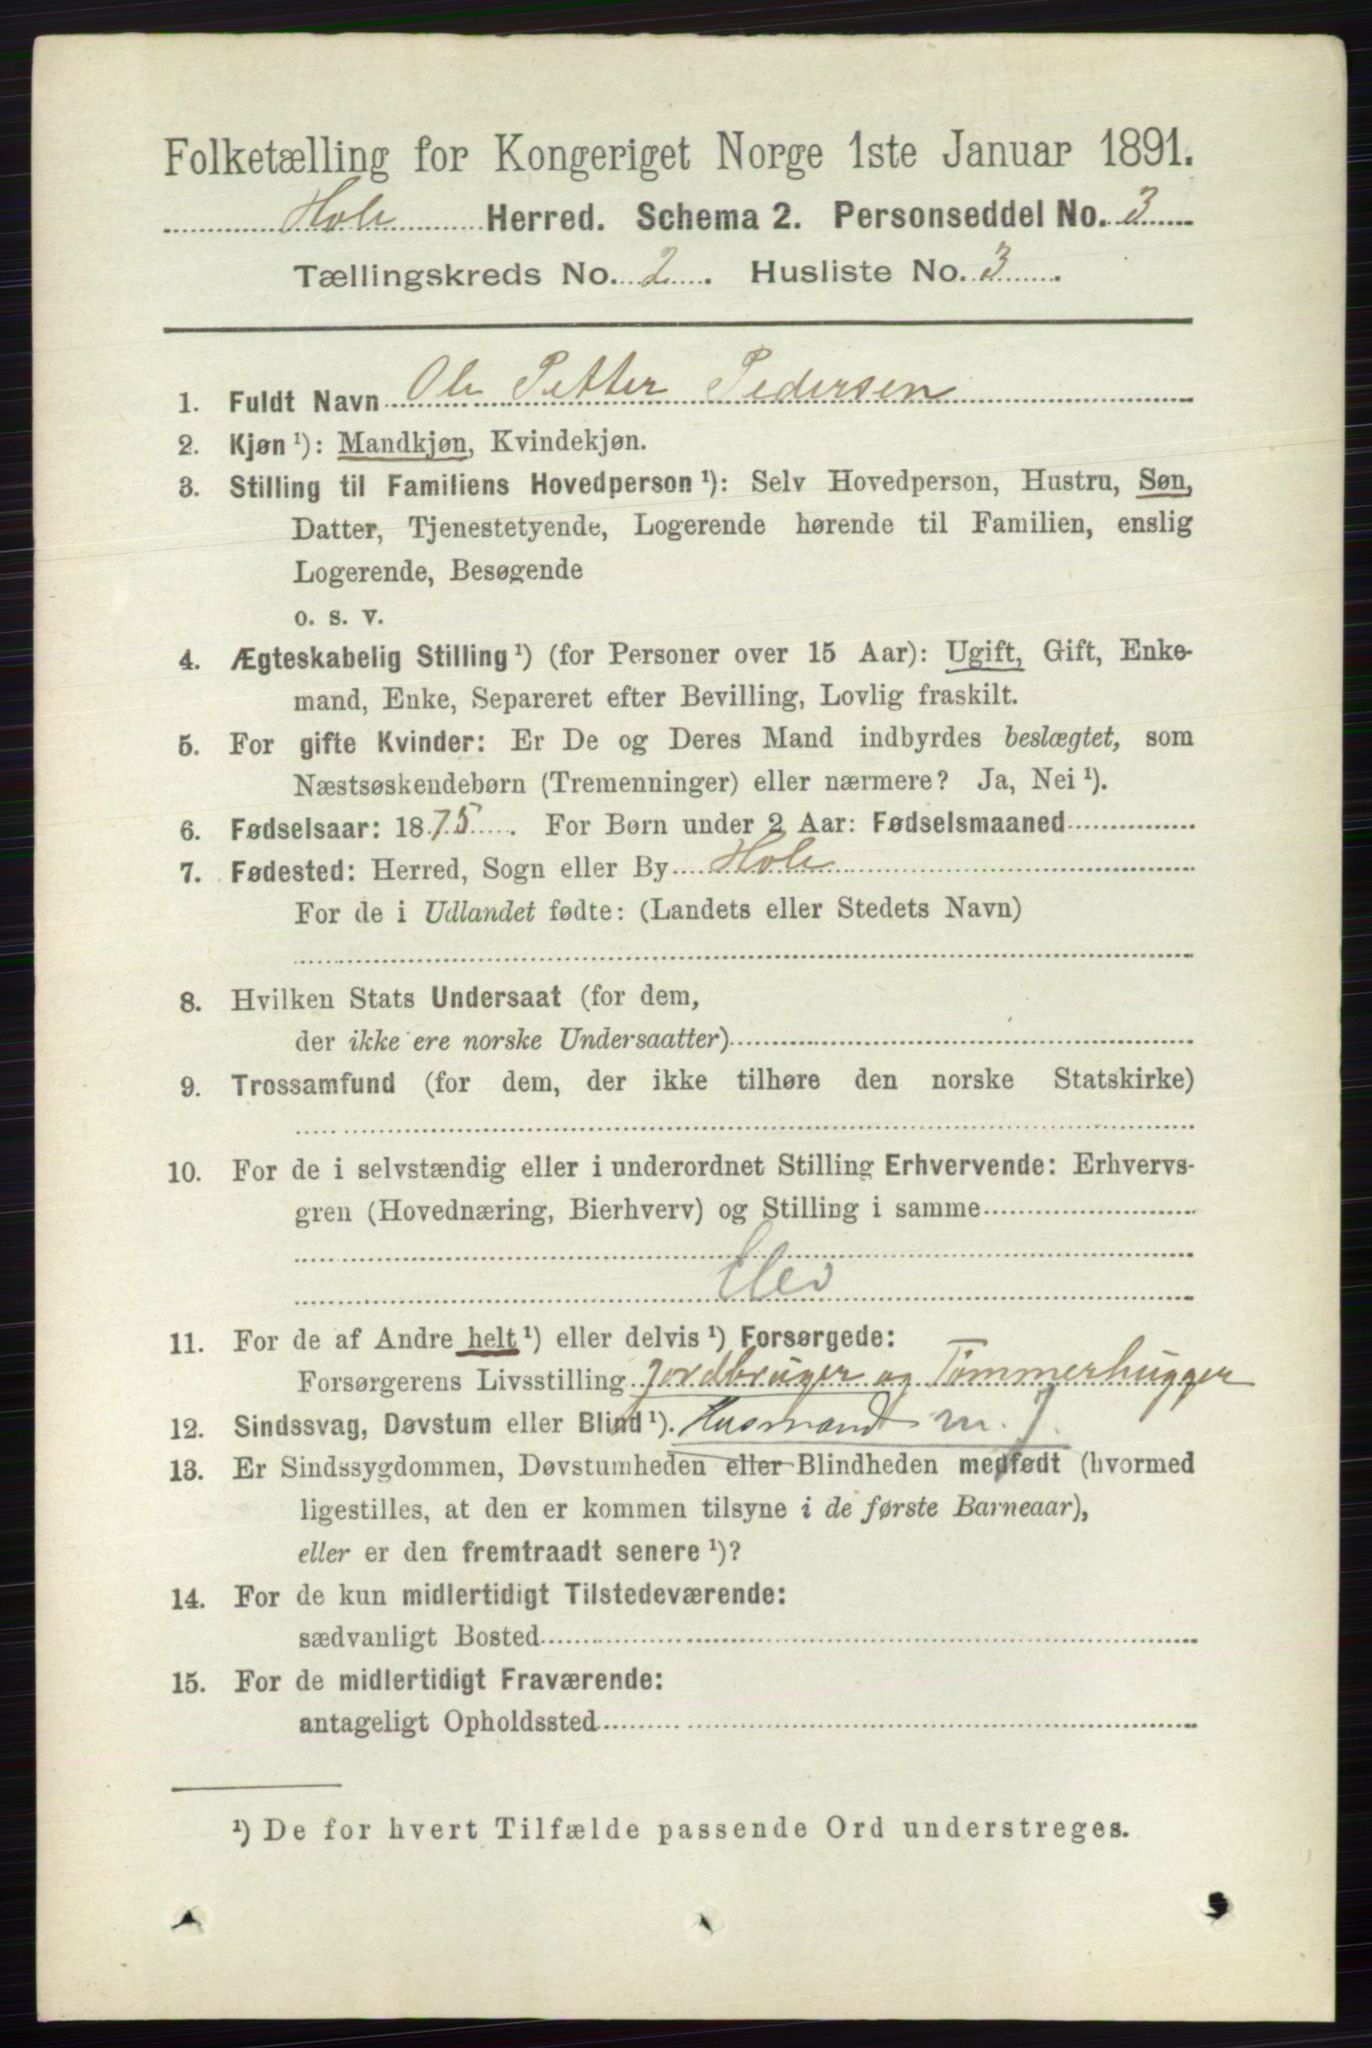 Folketælling for Kongeriget Norge 1ste Januar 1891.
Hole Herred. Schema 2. Personseddel No. 3
Tællingskreds No. 2. Husliste No. 3.
1. Fuldt Navn Ole Petter Pedersen
2. Kjøn ¹): Mandkjøn, Kvindekjøn.
3. Stilling til Familiens Hovedperson ¹): Selv Hovedperson, Hustru, Søn,
Datter, Tjenestetyende, Logerende hørende til Familien, enslig
Logerende, Besøgende
o. s. v.
4. Ægteskabelig Stilling ¹) (for Personer over 15 Aar): Ugift, Gift, Enke-
mand, Enke, Separeret efter Bevilling, Lovlig fraskilt.
5. For gifte Kvinder: Er De og Deres Mand indbyrdes beslægtet, som
Næstsøskendebørn (Tremenninger) eller nærmere? Ja, Nei ¹).
6. Fødselsaar: 1875. For Børn under 2 Aar: Fødselsmaaned
7. Fødested: Herred, Sogn eller By Hole
For de i Udlandet fødte: (Landets eller Stedets Navn)
8. Hvilken Stats Undersaat (for dem,
der ikke ere norske Undersaatter)
9. Trossamfund (for dem, der ikke tilhøre den norske Statskirke)
10. For de i selvstændig eller i underordnet Stilling Erhvervende: Erhvervs-
gren (Hovednæring, Bierhverv) og Stilling i samme
Elev
11. For de af Andre helt ¹) eller delvis ¹) Forsørgede:
Forsørgerens Livsstilling Jordbruger og Tømmerhugger
12. Sindssvag, Døvstum eller Blind ¹). Husmand m. J.
13. Er Sindssygdommen, Døvstumheden eller Blindheden medfødt (hvormed
ligestilles, at den er kommen tilsyne i de første Barneaar),
eller er den fremtraadt senere ¹)?
14. For de kun midlertidigt Tilstedeværende:
sædvanligt Bosted
15. For de midlertidigt Fraværende:
antageligt Opholdssted
¹) De for hvert Tilfælde passende Ord understreges.